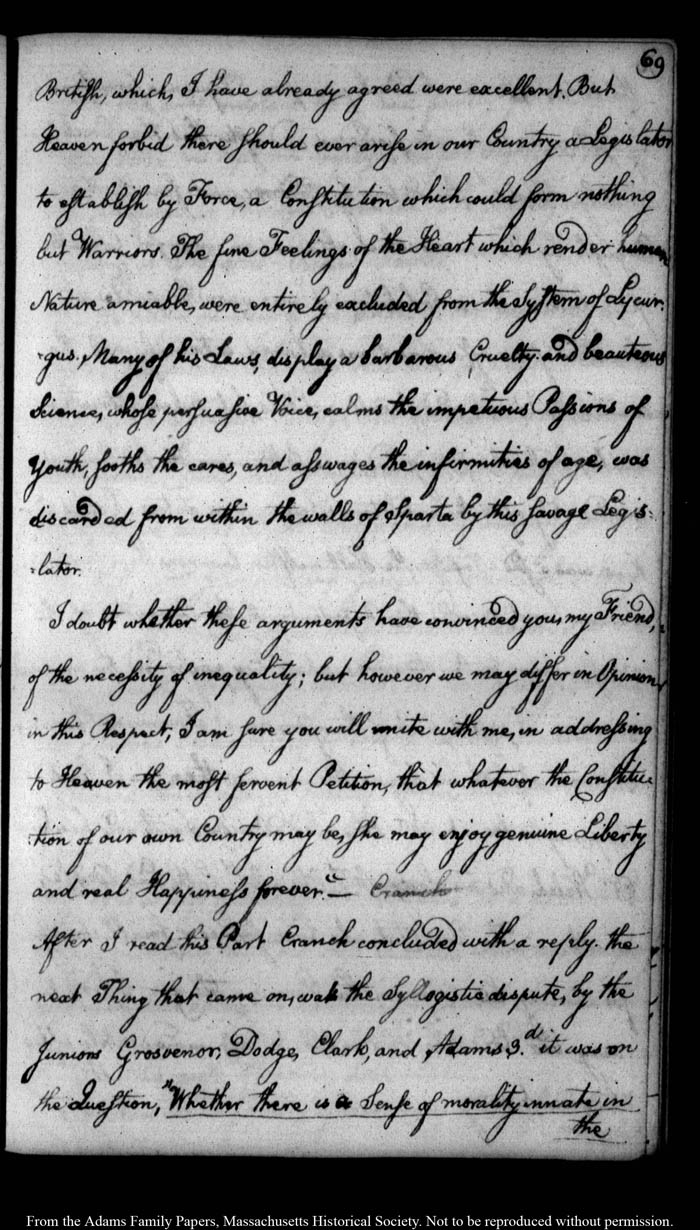 69
British, which, I have already agreed were excellent. But
Heaven forbid there should ever arise in our Country a Legislator
to establish by Force, a Constitution which could form nothing
but Warriors. The fine Feelings of the Heart which render human
Nature amiable, were entirely excluded from the System of Lycur-
-gus. Many of his Laws, display a barbarous Cruelty. and beauteous
Science, whose persuasive Voice, calms the impetuous Passions of
Youth, sooths the cares, and asswages the infirmities of age, was
discarded from within the walls of Sparta by this savage Legis-
-lator.
I doubt whether these arguments have convinced you, my Friend,
of the necessity of inequality; but however we may differ in Opinion
in this Respect, I am sure you will unite with me, in addressing
to Heaven the most fervent Petition, that whatever the Constitu-
-tion of our own Country may be, she may enjoy genuine Liberty
and real Happiness forever." — Cranch
After I read this Part Cranch concluded with a reply. the
next Thing that came on, was the Syllogistic dispute, by the
Juniors Grosvenor, Dodge, Clark, and Adams 3.d it was on
the Question, "Whether there is a Sense of morality innate in
the
From the Adams Family Papers, Massachusetts Historical Society. Not to be reproduced without permission.